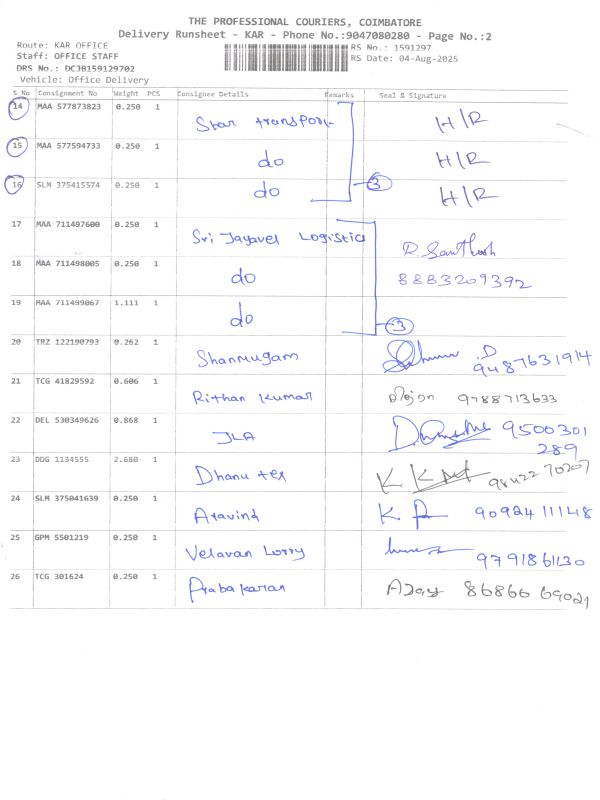 THE PROFESSIONAL COURIERS, COIMBATORE
Delivery Runsheet - KAR - Phone No.:9047080280 - Page No.:2
Route: KAR OFFICE RS No.: 1591297
Staff: OFFICE STAFF RS Date: 04-Aug-2025
DRS No.: DCJB159129702
Vehicle: Office Delivery
S No Consignment No Weight PCS Consignee Details Remarks Seal & Signature
14 MAA 577873823 0.250 1 Star transport H/R
15 MAA 577594733 0.250 1 do H/R
16 SLM 375415574 0.250 1 do 3 H/R
17 MAA 711497600 0.250 1 Sri Jayavel Logistics R. Santhosh
18 MAA 711498005 0.250 1 do 8883209392
19 MAA 711499067 1.111 1 do 3
20 TRZ 122190793 0.262 1 Shanmugam 9487631914
21 TCG 41829592 0.606 1 Rithan Kumar 9788713633
22 DEL 530349626 0.868 1 JLA 9500301
289
23 DDG 1134555 2.680 1 Dhanu tex 98422 70207
24 SLM 375041639 0.250 1 Aravind K. P 90924 11148
25 GPM 5501219 0.250 1 Velavan Lorry 9791861130
26 TCG 301624 0.250 1 Prabakaran AJay 86866 69021